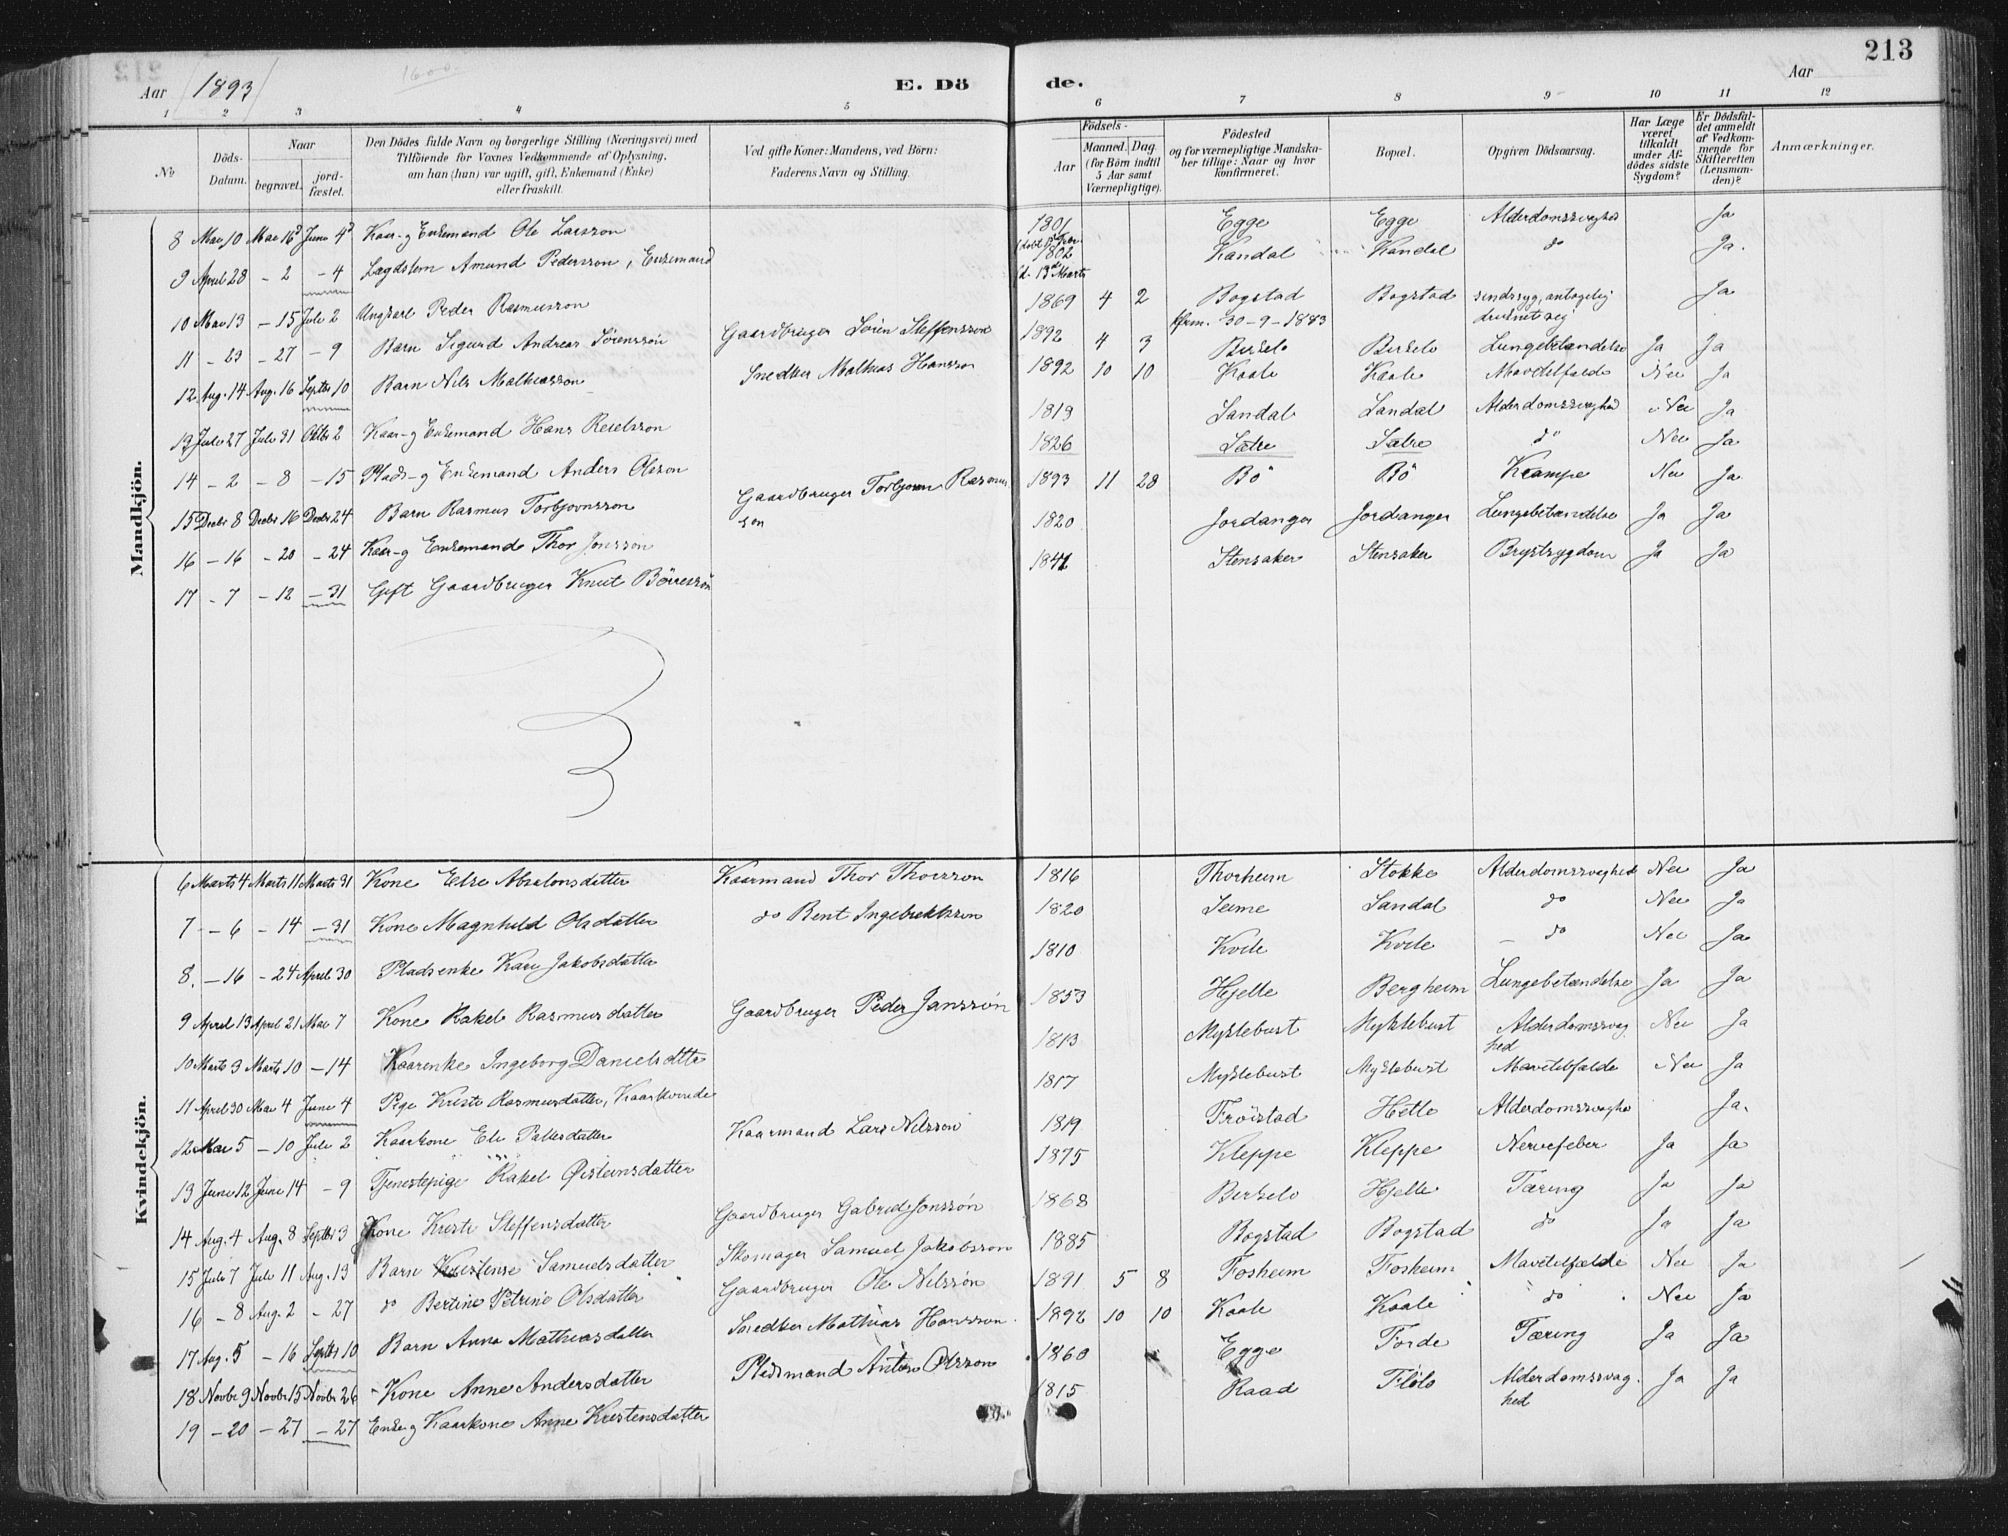 213
Aar 1893
1600.
E. Dö de.
Aar
1 2 3 4 5 6 7 8 9 10 11 12
No
Döds-Datum.
Naar
begravet.
jord-fæstet.
Den Dödes fulde Navn og borgerlige Stilling (Næringsvei) med
Tilföiende for Voxnes Vedkommende af Oplysning,
om han (hun) var ugift, gift, Enkemand (Enke)
eller fraskilt.
Ved gifte Koner: Mandens, ved Börn:
Faderens Navn og Stilling.
Födsels-
Aar
Maaned. Dag
(for Börn indtil
5 Aar samt
Værnepligtige).
Födested
og for værnepligtige Mandska-
ber tillige: Naar og hvor
konfirmeret.
Bopæl.
Opgiven Dödsaarsag.
Har Læge
været
tilkaldt
under Af-
dödes sidste
Sygdom?
Er Dödsfal-
det anmeldt
af Vedkom-
mende for
Skifteretten
(Lensman-
den)?
Anmærkninger.
Mandkjön.
8 Mai 10 Mai 16 Juni 4 Kaar- g Enkemand Ole Larsson 1801 Egge Egge Alderdomssvaghed Ja
9 April 28 - 2 - 4 Lægdslem Amund Pedersson, Enkemand 1802 d. 13 Marts Kandal Kandal do Ja.
10 Mai 13 - 15 Juli 2 Ungkarl Peder Rasmusson 1869 4 2 Bogstad Bogstad sindssyg, antagelig Ja
kfrm. 30-9-1883 druknet sig
11 - 23 - 27 - 9 Barn Sigurd Andreas Sörensson Gaardbruger Sören Steffensson 1892 4 3 Birkelo Birkelo Lungebetændelse Ja Ja
12 Aug. 14 Aug. 16 Septbr 10 Barn Nils Mathiasson Snedker Mathias Hansson 1892 10 10 Kaale Kaale Mavetilfælde Nei Ja
13 Juli 27 Juli 31 Oktbr 2 Kaar- g Enkemand Hans Reielsson 1819 Sandal Sandal Alderdomssvaghed Nei Ja
14 - 2 - 8 - 15 Plads- g Enkemand Anders Olsson 1826 Sætre Sætre do Nei Ja
15 Decbr 8 Decbr 16 Decbr 24 Barn Rasmus Torbjørnsson Gaardbruger Torbjørn Rasmus 1893 11 28 Bö Bö Krampe Nei Ja
son
16 - 16 - 20 - 24 Kaar- g Enkemand Thor Jonsson 1820 Jordanger Jordanger Lungebetændelse Ja Ja
17 - 7 - 12 - 31 Gift Gaardbruger Knut Börresson 1841 Stensaker Stensaker Brystsygdom Ja Ja
Kvindekjön.
6 Marts 4 Marts 11 Marts 31 Kone Else Absalonsdatter Kaarmand Thor Thorsson 1816 Thorheim Stokke Alderdomssvaghed Nei Ja
7 - 6 - 14 - 31 Kone Magnhild Olsdatter do Bent Ingebrektsson 1820 Seime Sandal do Nei Ja
8. - 16 - 24 April 30 Pladsenke Kari Jakobsdatter 1810 Kvile Kvile do Nei Ja
9 April 13 April 21 Mai 7 Kone Rakel Rasmusdatter Gaardbruger Peder Jansson 1853 Hjelle Bergheim Lungebetændelse Ja Ja
10 Marts 3 Marts 10 - 14 Kaarenke Ingeborg Danielsdatter 1813 Myklebust Myklebust Alderdomssvag Nei Ja
hed
11 April 30 Mai 4 Juni 4 Pige Kristi Rasmusdatter, Kaarkvinde 1817 Myklebust Myklebust Mavetilfælde Nei Ja
12 Mai 5 - 10 Juli 2 Kaarkone Eli Pallesdatter Kaarmand Lars Nilsson 1819 Fröistad Hetle Alderdomssvaghe Ja.
13 Juni 12 Juni 14 - 9 Tjenestepige Rakel Øisteinsdatter 1875 Kleppe Kleppe Nervefeber Ja Ja
14 Aug. 4 Aug. 8 Septbr 3 Kone Kristi Steffensdatter Gaardbruger Gabriel Jonsson 1868 Birkelo Hjelle Tæring Ja Ja
15 Juli 7 Juli 11 Aug. 13 Barn Kristense Samuelsdatter Skomager Samuel Jakobsson 1885 Bogstad Bogstad do Ja Ja
16 - 8 Aug. 2 - 27 do Bertine Petrine Olsdatter Gaardbruger Ole Nilsson 1891 5 8 Fosheim Fosheim Mavetilfælde Nei Ja
17 Aug. 5 - 16 Septbr 10 Barn Anna Mathiasdatter Snedker Mathias Hansson 1892 10 10 Kaale Kaale do Nei Ja
18 Novbr 9 Novbr 15 Novbr 26 Kone Anne Andersdatter Pladsmand Anton Olsson 1860 Egge Förde Tæring Ja Ja
19 - 20 - 27 - 27 Enke g Kaarkone Anne Kristensdatter 1815 Raad Flölo Alderdomssvag Ja Ja
hed